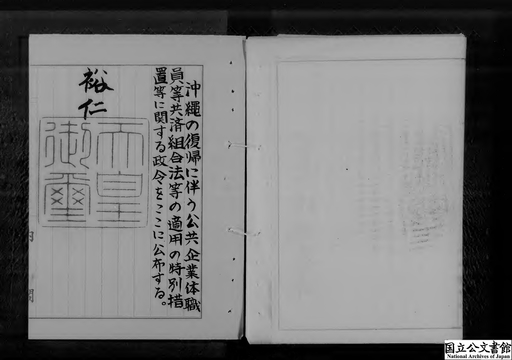 沖縄の復帰に伴う公共企業体職
員等共済組合法等の適用の特別措
置等に関する政令をここに公布する。
裕仁
天皇
御璽
国立公文書館
National Archives of Japan